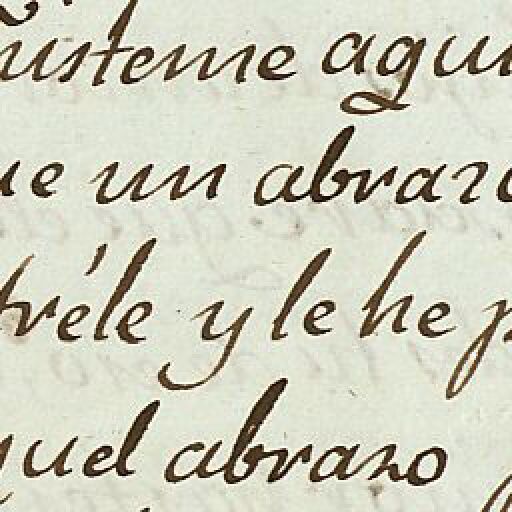 usteme aqui
ue un abrazo
tréle y le he p
quel abrazo